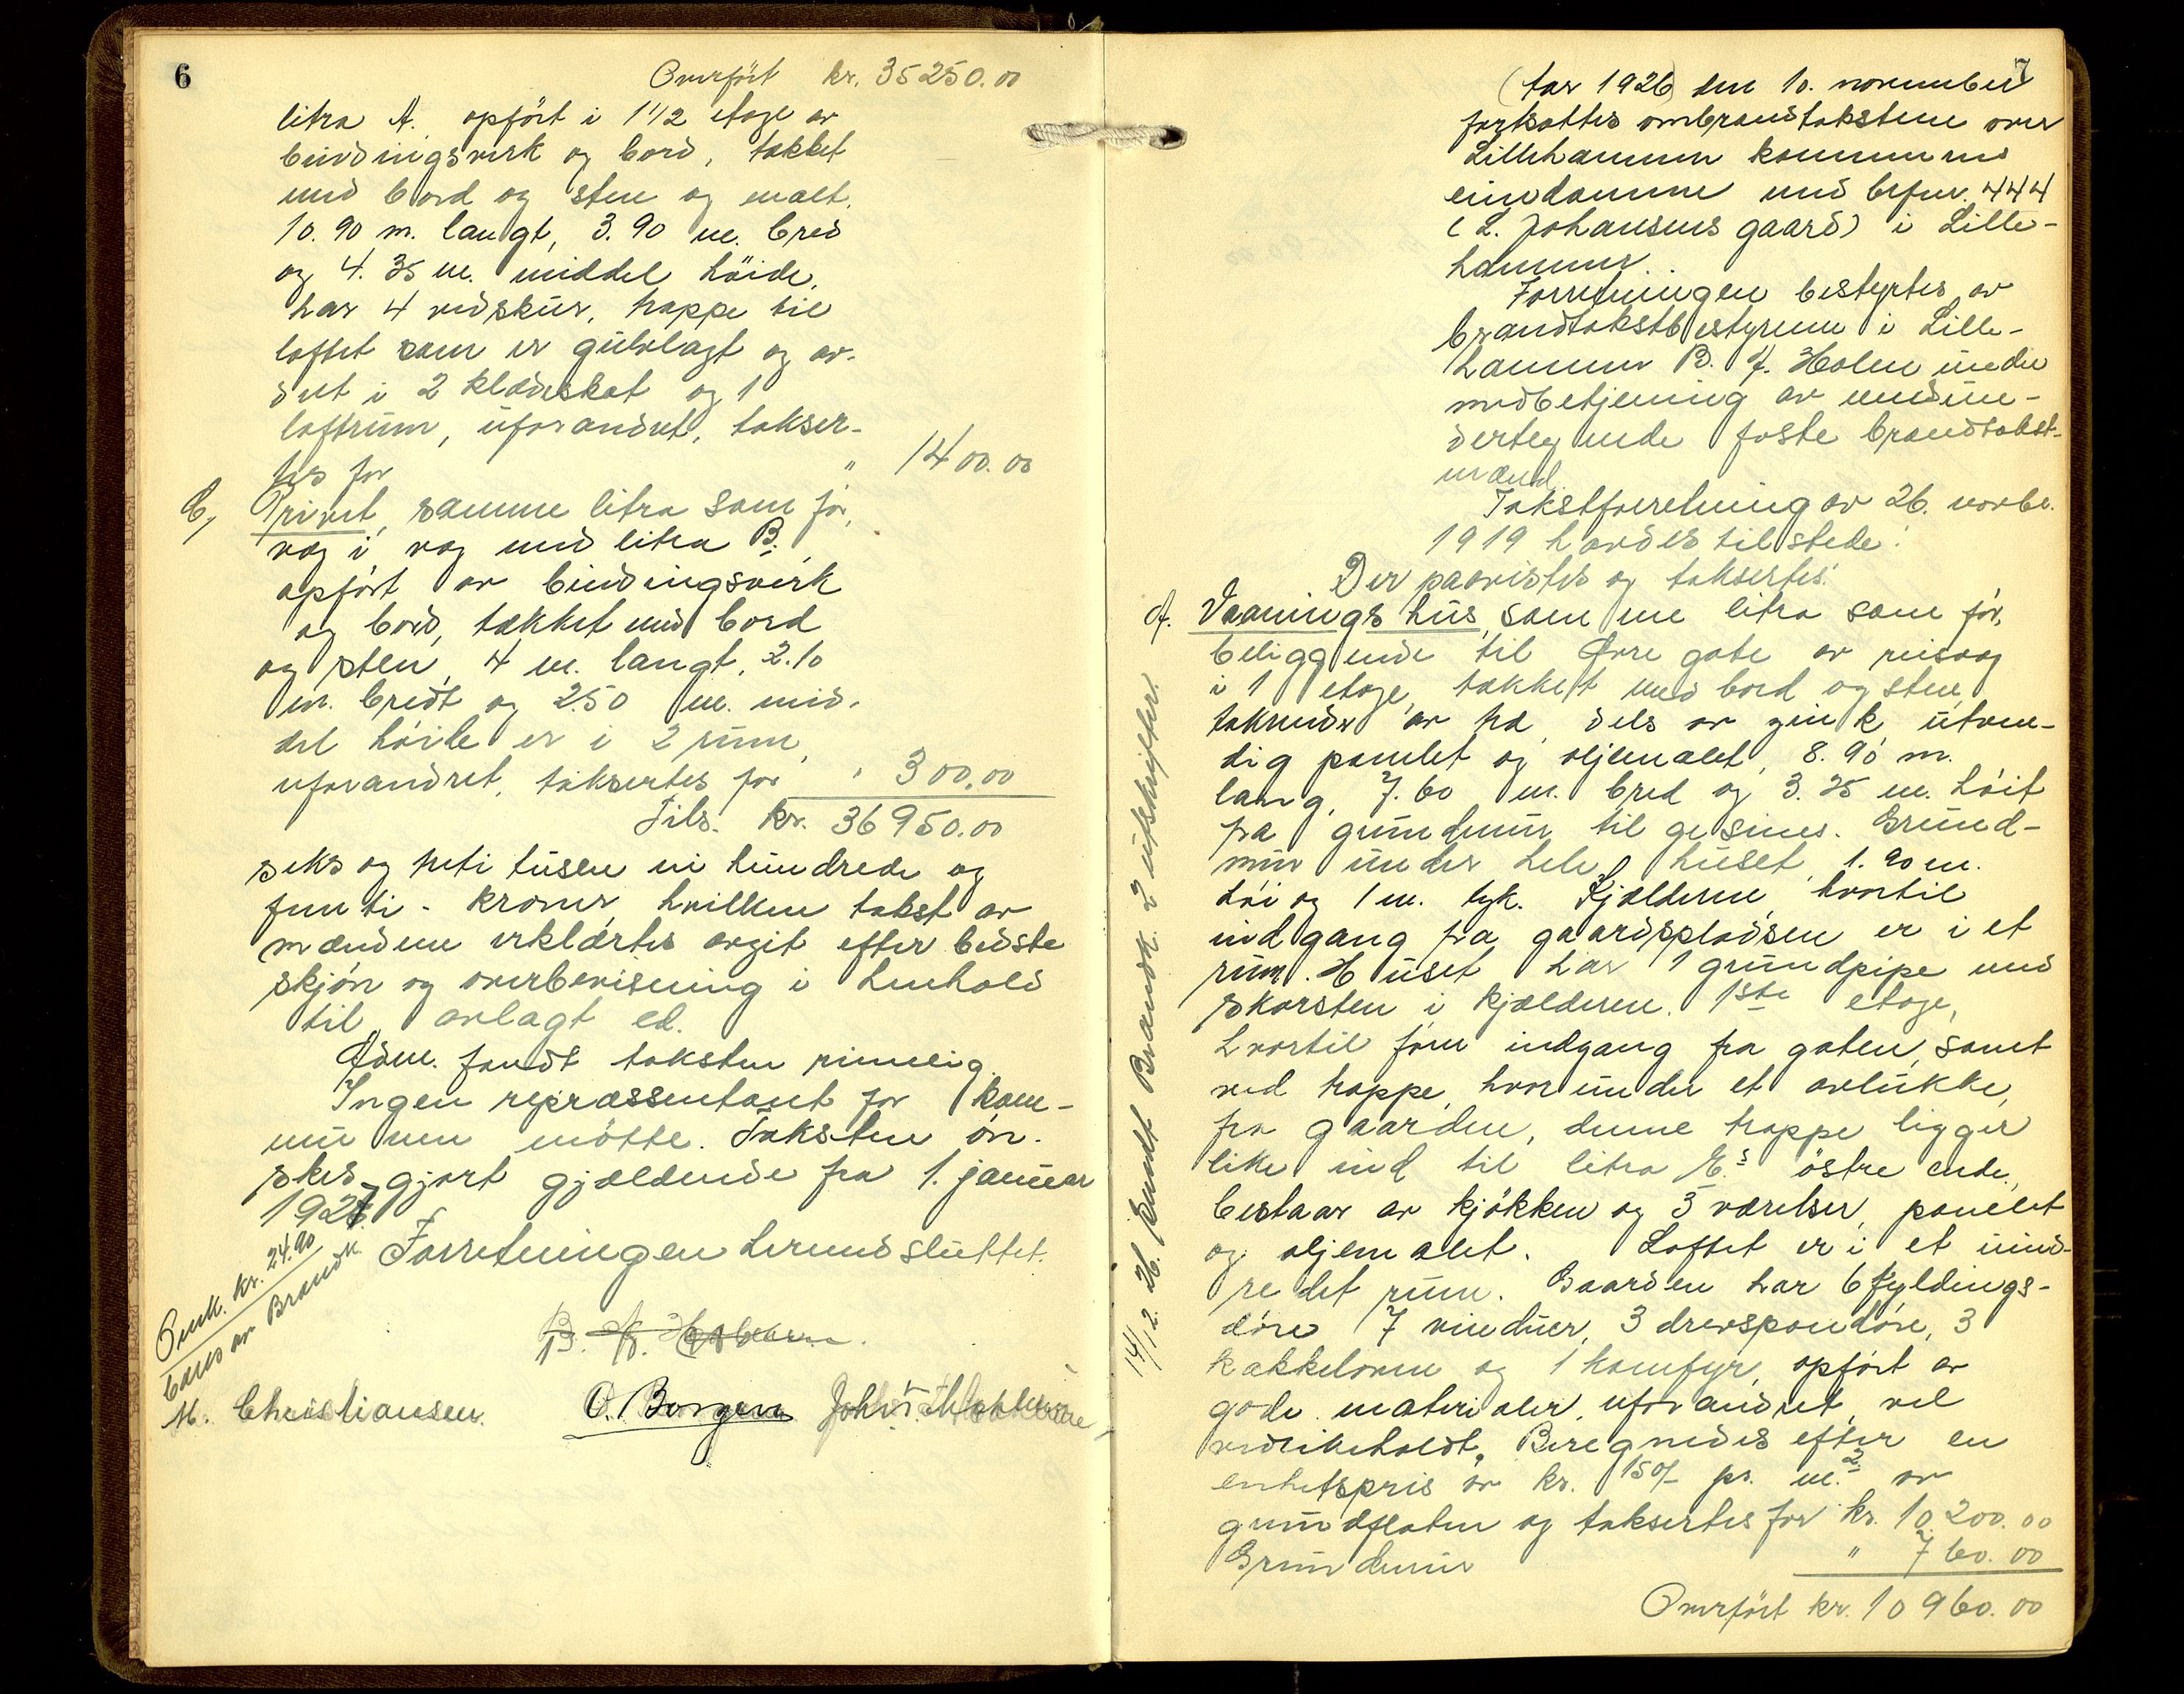 6
Overført kr. 35250.00
litra A. opført i 1 1/2 etage av
bindingsverk og bord, tækket
med bord og sten og malt.
10.90 m. langt, 3.90 m. bred
og 4.35 m. middel höide,
har 4 vedskur, trappe til
loftet som er gulvlagt og av-
delt i 2 klædeskot og 1
loftrum, uforandret, takser-
tes for " 1400.00
C, Privet, samme litra som før,
væg i væg med litra B.
opført av bindingsverk
og bord, tækket med bord
og sten, 4 m. langt, 2.10
m. bredt og 2.50 m. mid-
del høide er i 2 rum,
uforandret, taksertes for " 300.00
Tils. kr. 36950.00
seks og treti tusen ni hundrede og
femti - kroner, hvilken takst av
mændene erklærtes avgit efter bedste
skjøn og overbevisning i henhold
til avlagt ed.
Adm. fandt taksten rimelig.
Ingen repræssentant for kom-
munen møtte. Taksten øn-
skes gjort gjældende fra 1. januar
1927.
Forretningen hermed sluttet.
Omk. kr. 24.90
bæres av Brandk.
B. F. Holen.
M. Christiansen. O. Borgen Joh. T.
7
(Aar 1926) den 10. november
fortsattes ombrandtakstene over
Lillehammer kommunes
eiendomme med brfnr. 444
(L. Johansens gaard) i Lille-
hammer.
Forretningen bestyrtes av
brandtakstbestyreren i Lille-
hammer B. F. Holen under
medbetjening av nedun-
dertegnede faste brandtakst-
mænd.
Takstforretning av 26. novbr.
1919 havdes tilstede.
Der paavistes og taksertes:
A. Vaaningshus, samme litra som før,
beliggende til Øvre gate av reisverk
i 1 etage, tækket med bord og sten,
takrender av træ, dels av zink, utven-
dig panelet og oljemalet, 8.90 m.
lang, 7.60 m. bred og 3.35 m. høit
fra grundmur til gesims. Grund-
mur under hele huset, 1.90 m.
høi og 1 m. tyk. Kjælderen hvortil
indgang fra gaardspladsen er i et
rum. Huset har 1 grundpipe med
skorsten i kjælderen. 1ste etage,
hvortil føres indgang fra gaten, samt
ved trappe, hvorunder et avlukke,
fra gaarden, denne trappe ligger
like ind til litra E.s østre ende,
bestaar av kjøkken og 3 værelser, panelet
og oljemalet. Loftet er i et uind-
redet rum. Gaarden har 6 fyldings-
døre 7 vinduer, 3 drevspondøre, 3
kakkelovne og 1 komfyr, opført av
gode materialer, uforandret, vel
vedlikeholdt. Beregnedes efter en
enhetspris av kr. 150/- pr. m.2 av
grundflaten og taksertes for kr. 10200.00
Grundmur " 760.00
Overført kr. 10960.00
14/12. 26. sendt Brandk. 2 utskrifter.